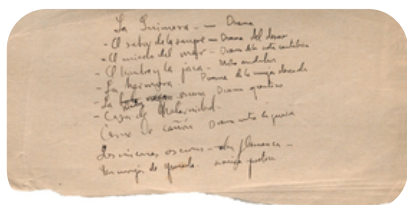 La Quimera — Drama
- El sabor de la sangre — Drama del deseo
- El miedo del mar — Drama de la costa cantábrica
- El hombre y la jaca — Mito andaluz
- La hermosa. Poema de la mujer deseada
- La oscura Drama
- Casa de Maternidad.
Carne de cañón Drama contra la guerra
Los rincones oscuros — flamenca —
Las monjas de Granada